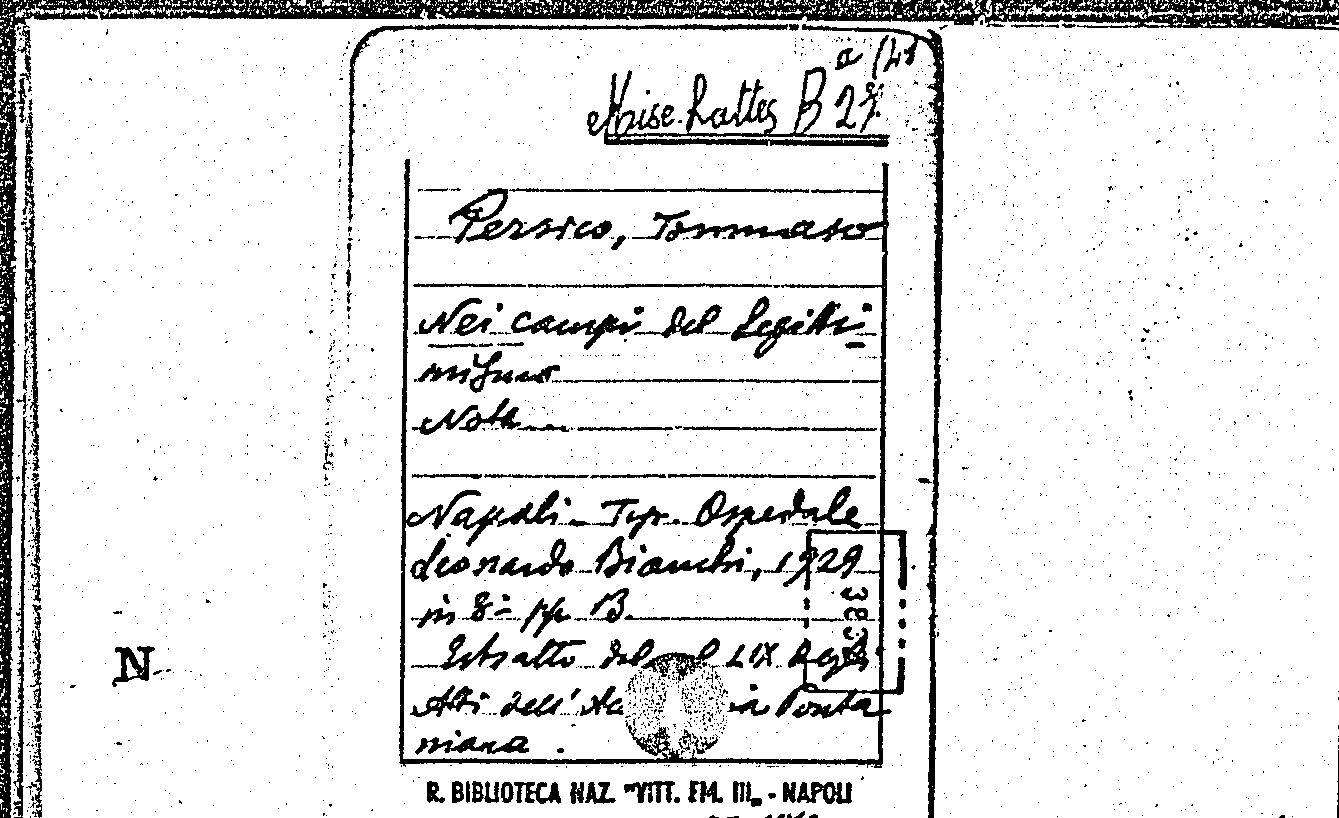 a (41
Misc. Lattes B 27
Persico, Tommaso
Nei campi del Legitti-
mismo
Nota
Napoli - Tip. Ospedale
Leonardo Bianchi, 1929
in 8º pp.
Estratto dal LIX degli
Atti dell' Ac ia Ponta
niana.
N
R. BIBLIOTECA NAZ. "VITT. EM. III" - NAPOLI